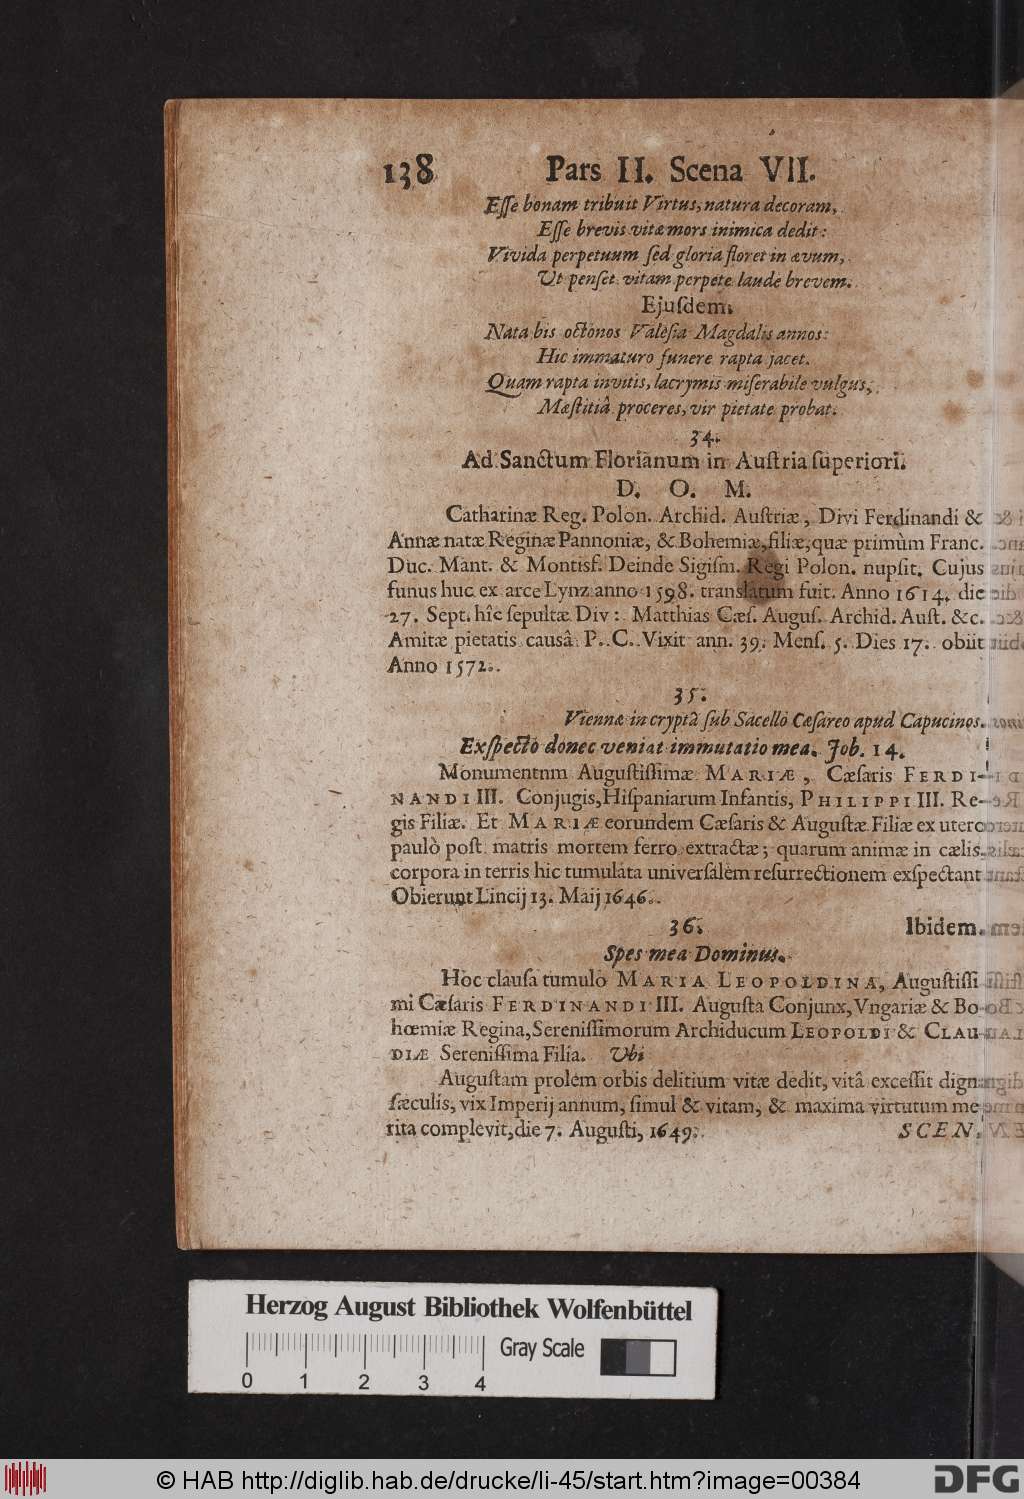 138 Pars II. Scena VII.
Esse bonam tribuit Virtus, natura decoram,
Esse brevis vitæ mors inimica dedit:
Vivida perpetuum sed gloria floret in ævum,
Ut penset vitam perpete laude brevem.
Ejusdem.
Nata bis octonos Valesia Magdalis annos:
Hic immaturo funere rapta jacet.
Quam rapta invitis, lacrymis miserabile vulgus,
Mæstitiâ proceres, vir pietate probat.
34.
Ad Sanctum Florianum in Austria superiori.
D. O. M.
Catharinæ Reg. Polon. Archid. Austriæ, Divi Ferdinandi &
Annæ natæ Reginæ Pannoniæ, & Bohemiæ, filiæ, quæ primùm Franc.
Duc. Mant. & Montisf. Deinde Sigism. Regi Polon. nupsit. Cujus
funus huc ex arce Lynz anno 1598. translatum fuit. Anno 1614. die
27. Sept. hîc sepultæ Div: Matthias Cæs. Augus. Archid. Aust. &c.
Amitæ pietatis causâ P. C. Vixit ann. 39. Mens. 5. Dies 17. obiit
Anno 1572.
35.
Viennæ in cryptâ sub Sacello Cæsareo apud Capucinos.
Exspecto donec veniat immutatio mea. Job. 14.
Monumentnm Augustissimæ MARIÆ, Cæsaris FERDI-
NANDI III. Conjugis, Hispaniarum Infantis, PHILIPPI III. Re-
gis Filiæ. Et MARIÆ eorundem Cæsaris & Augustæ Filiæ ex utero
paulò post matris mortem ferro extractæ; quarum animæ in cælis
corpora in terris hic tumulata universalem resurrectionem exspectant
Obierunt Lincij 13. Maij 1646.
36. Ibidem.
Spes mea Dominus.
Hoc clausa tumulo MARIA LEOPOLDINA, Augustissi
mi Cæsaris FERDINANDI III. Augusta Conjunx, Vngariæ & Bo-
hœmiæ Regina, Serenissimorum Archiducum LEOPOLDI & CLAU-
DIÆ Serenissima Filia. Ubi
Augustam prolem orbis delitium vitæ dedit, vitâ excessit dign
sæculis, vix Imperij annum, simul & vitam, & maxima virtutum me
rita complevit, die 7. Augusti, 1649.
SCEN.
Herzog August Bibliothek Wolfenbüttel
Gray Scale
0 1 2 3 4
© HAB http://diglib.hab.de/drucke/li-45/start.htm?image=00384
DFG